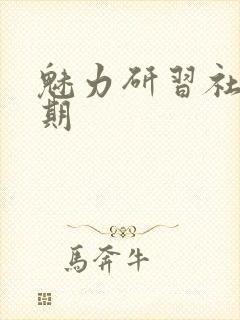 魅力研習社
期
馬奔牛